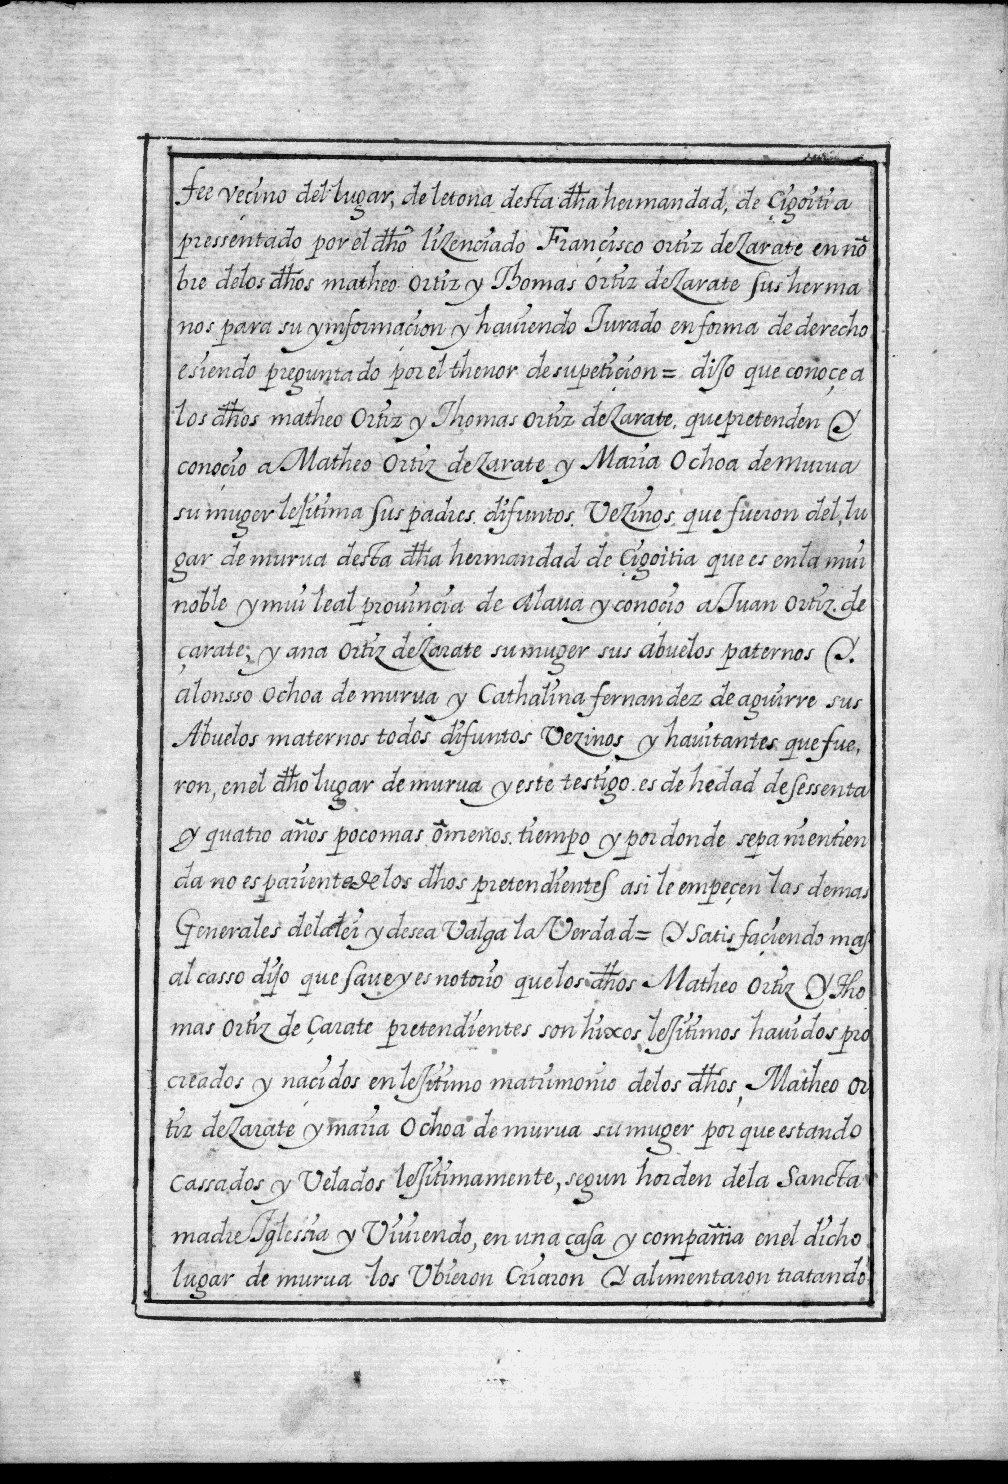 fee veçino del lugar, de letona desta dħa hermandad, de Çigoitia
pressentado por el dħo lizenciado Françisco ortiz de Zarate en nō
bre delos dħos matheo ortiz y Thomas ortiz de Zarate sus herma
nos para su ynformaçion y hauiendo Jurado en forma de derecho
e siendo preguntado por el thenor de su petiçion = dijo que conoçe a
los dħos matheo Ortiz y Thomas ortiz de Zarate. que pretenden Y
conoçio a Matheo Ortiz de Zarate y Maria Ochoa de murua
su muger lesitima sus padres difuntos. Vezinos que fueron del, lu
gar de murua desta dħa hermandad de Çigoitia que es en la mui
noble y mui leal prouinçia de Alaua y conoçio a Juan ortiz. de
çarate; y ana ortiz de Zarate su muger sus abuelos paternos Y.
alonsso Ochoa de murua y Cathalina fernandez de aguirre sus
Abuelos maternos todos difuntos Vezinos y hauitantes que fue,
ron, en el dħo lugar de murua y este testigo. es de hedad de sessenta
y quatro años poco mas ō menos. tiempo y por donde sepa ni entien
da no es pariente de los dhos pretendientes asi le empeçen las demas
Generales de la lei y desea Valga la Verdad = Y Satis façiendo mas
al casso dijo que saue y es notorio que los dħos Matheo ortiz Y Tho
mas ortiz de Çarate pretendientes son hixos lesitimos hauidos pro
creados y naçidos en lesitimo matrimonio de los dħos, Matheo or
tiz de Zarate y maria Ochoa de murua su muger por que estando
cassados y Velados lesitimamente, segun horden de la Sancta
madre Iglessia y Viuiendo, en una casa y compañia en el dicho
lugar de murua los Vbieron Criaron Y alimentaron tratando